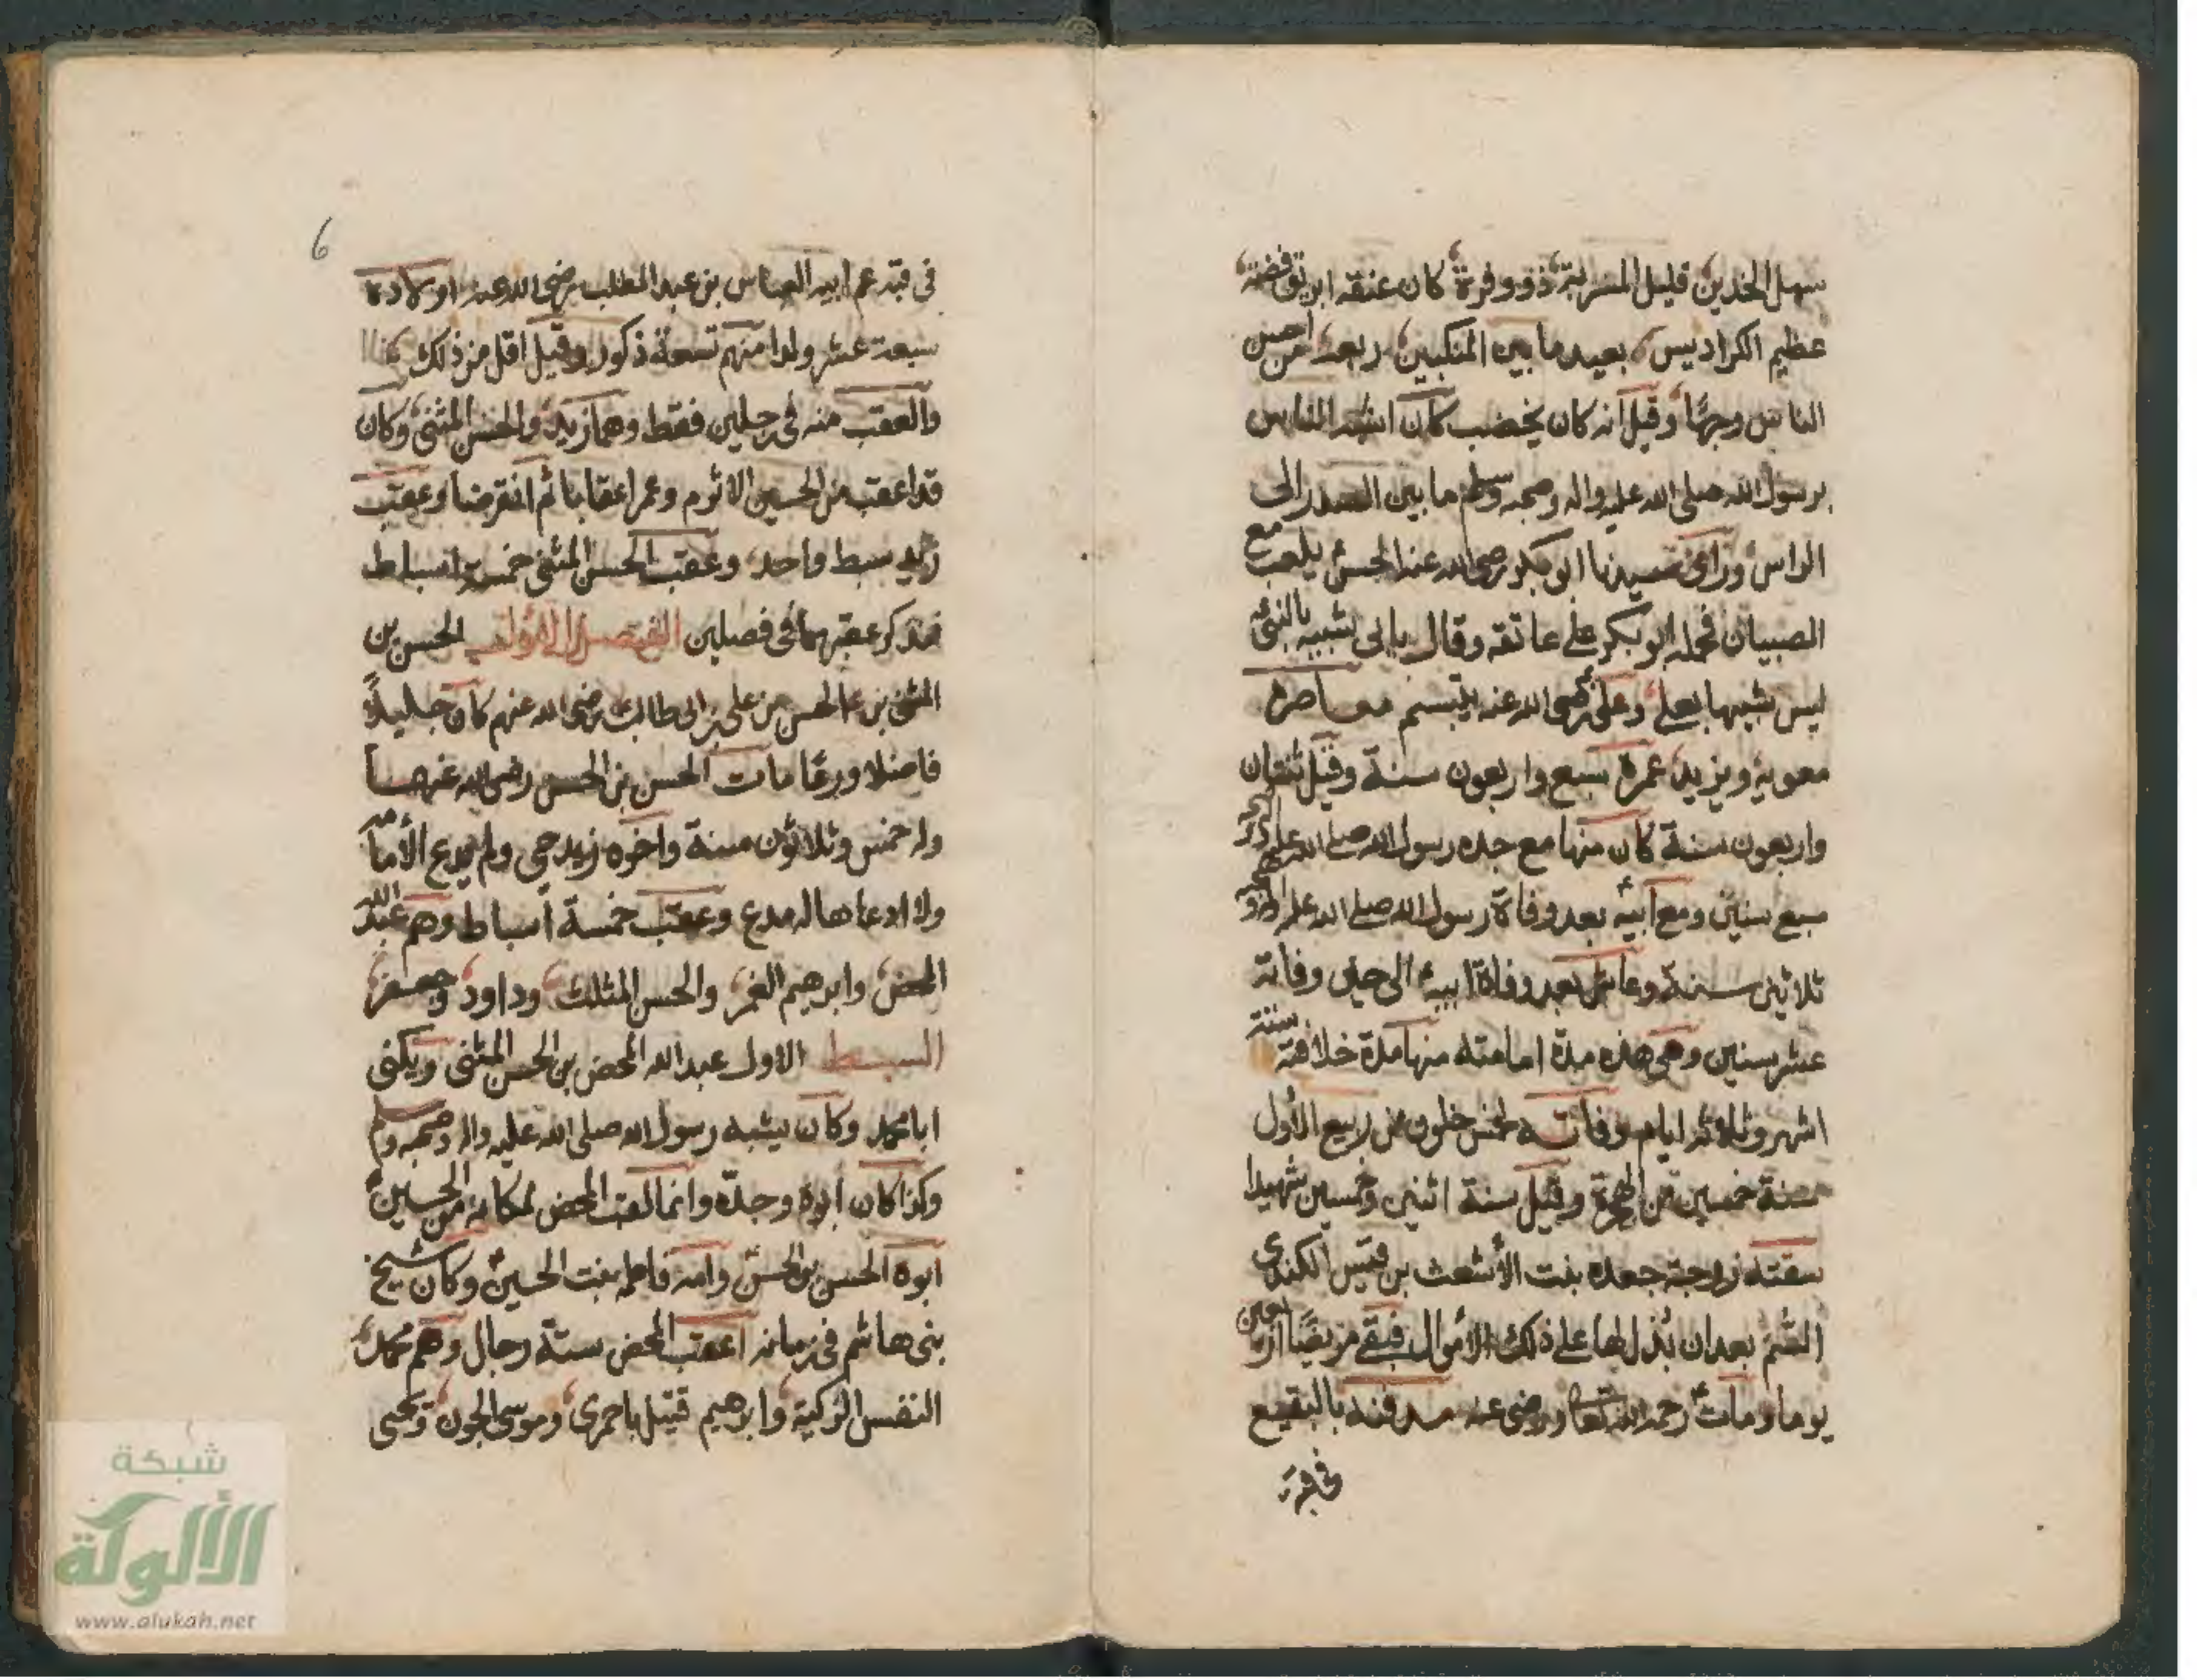 سهل الخدين قليل المسربة ذو وفرة كان عنقه ابريق فضة
عظيم الكراديس بعيد ما بين المنكبين ربعة من احسن
الناس وجها وقيل انه كان يخضب كان اشبه الناس
برسول الله صلى الله عليه واله وصحبه وسلم ما بين الصدر الى
الراس وراى سيدنا ابو بكر رضى الله عنه الحسن يلعب مع
الصبيان فحمله ابو بكر على عاتقه وقال بابى شبيه بالنبى
ليس شبيها بعلى وعلى رضى الله عنه يتبسم معاصره
معوية ويزيد عمره سبع واربعون سنة وقيل ثمان
واربعون سنة كان منها مع جده رسول الله صلى الله عليه
سبع سنين ومع ابيه بعد وفاة رسول الله صلى الله عليه
ثلاثين سنة وعاش بعد وفاة ابيه الى حين وفاته
عشر سنين وهى هذه مدة امامته منها مدة خلافته ستة
اشهر وثلاثة ايام وفاته لخمس خلون من ربيع الأول
سنة خمسين من الهجرة وقيل سنة اثنى وخمسين شهيدا
سقته زوجته جعده بنت الأشعث بن قيس الكندى
السّم بعد ان بُذل لها على ذلك الأموال فبقى مريضًا اربعين
يوما ومات رحمه الله تعالى ورضى عنه مدفنه بالبقيع
فى قبة
6
فى قبة عم ابيه العباس بن عبد المطلب رضى الله عنه اولاده
سبعة عشر ولدا منهم تسعة ذكور وقيل اقل من ذلك
والعقب منه فى رجلين فقط وهما زيد والحسن المثنى وكان
قد اعقب من الحسين الاثرم وعمر اعقابا ثم انقرضا وعقب
زيد سبط واحد وعقب الحسن المثنى خمسة اسباط
فنذكر عقبهما فى فصلين الفصل الاول الحسن بن
المثنى بن الحسن بن على بن ابى طالب رضى الله عنهم كان جليلاً
فاضلا ورعًا مات الحسن بن الحسن رضى الله عنهما
وله خمس وثلاثون سنة واخوه زيد حى ولم يدع الأمامة
ولا ادعاها له مدع وعقب خمسة اسباط وهم عبد الله
المحض وابرهيم الغمر والحسن المثلث وداود وجعفر
السبط الاول عبد الله المحض بن الحسن المثنى ويكنى
ابا محمد وكان يشبه رسول الله صلى الله عليه واله وصحبه وسلم
وكذا كان ابوه وجدّه وانما لقب المحض لمكانه من الحسين
ابوه الحسن بن الحسن وامه فاطمه بنت الحسين وكان شيخ
بنى هاشم فى زمانه اعقب المحض ستة رجال وهم محمد
النفس الزكية وابرهيم قتيل باخمرى وموسى الجون ويحيى
شبكة
الألولة
www.alukah.net